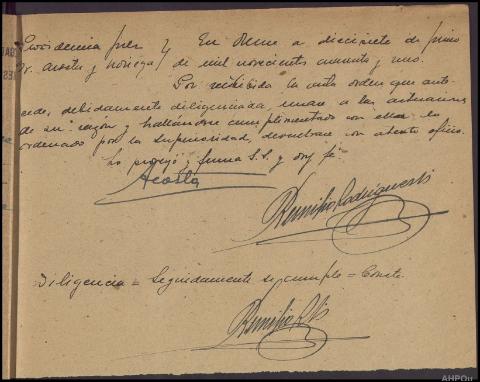 Providencia Juez } En Orense a diecisiete de junio
Sr. Acosta y Noriega } de mil novecientos cuarenta y uno.
Por recibida la carta orden que ante-
cede, debidamente diligenciada, unase a las actuaciones
de su razón y hallándose cumplimentado con ellas lo
ordenado por la Superioridad, devuélvase con atento oficio.
Lo proveyó y firma S.S. y doy fé.
Acosta
Remilio Rodriguez
Diligencia = Seguidamente se cumple = Conste.
Remilio
AHPOu